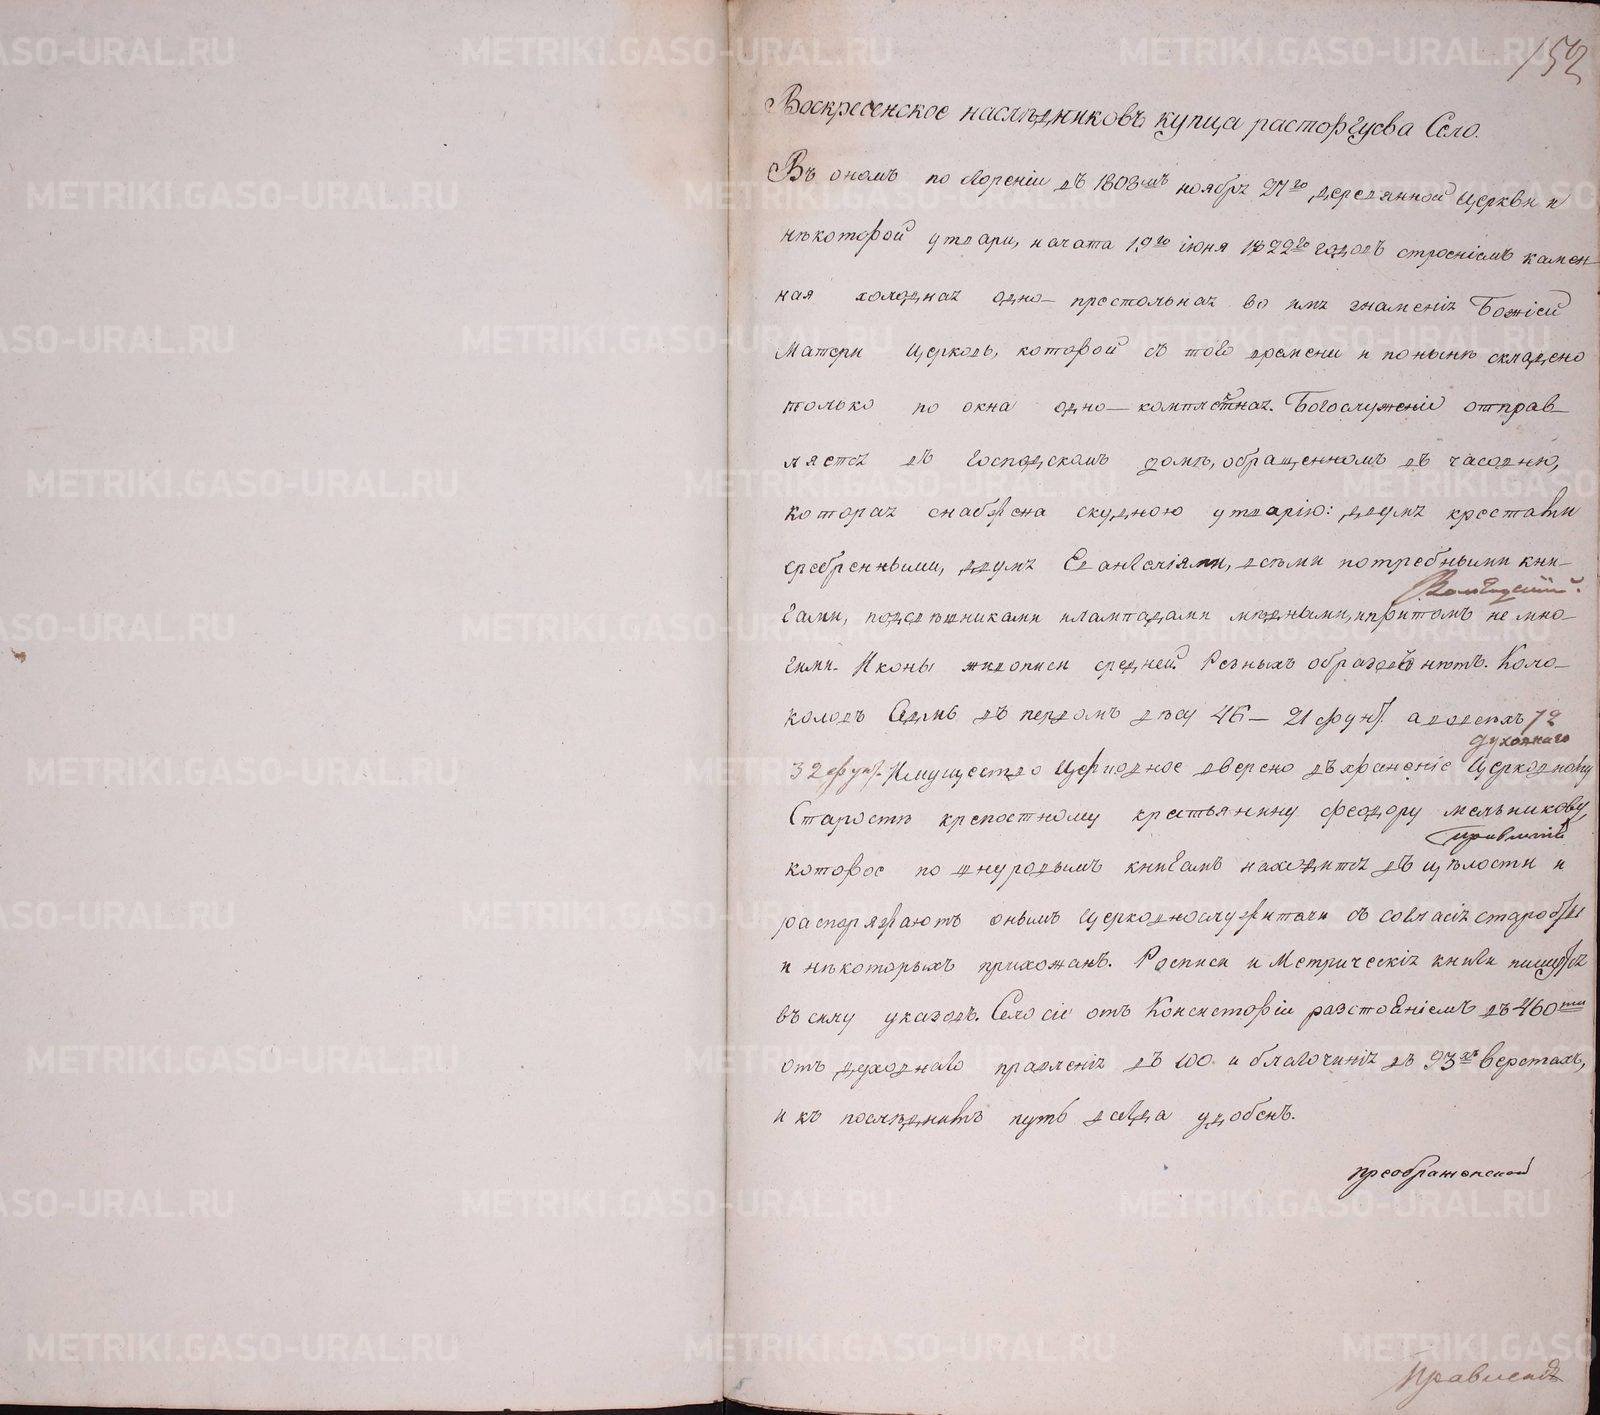 152
Воскресенское наслѣдниковъ купца расторгуева Село.
Въ ономъ по сгореніи въ 1808мъ ноября 27го деревянной Церкви и
нѣкоторой утвари, начата 19го іюня 1822го годовъ строеніемъ камен-
ная холодная одно-престольная во имя знаменія Божіей
Матери Церковь, которой съ того времени и понынѣ складено
только по окна одно-комплектная. Богослуженіе отправ-
ляется въ Господскомъ домѣ, обращенномъ въ часовню,
которая снабжена скудною утварію: двумя крестами
сребренными, двумя Евангеліями, всѣми потребными кни-
гами, подсвѣшниками и лампадами мѣдными, и притомъ не мно-
гими. Иконы живописи средней. Резныхъ образовъ нѣтъ. Коло-
коловъ Семь въ первомъ весу 46 - 21 фунт. а во всѣхъ 72
духовнаго
32 фун. Имущество Церковное вверено въ храненіе Церковному
Старостѣ крепостному крестьянину Феодору Мельникову,
правленія
которое по шнуровымъ книгамъ находится въ цѣлости и
распоряжаютъ онымъ Церковнослужители съ согласія старосты
и нѣкоторыхъ прихожанъ. Росписи и Метрическія книги пишутся
въ силу указовъ. Село сіе отъ Консисторіи разстояніемъ въ 460ти
отъ духовнаго правленія въ 100. и благочинія въ 93хъ верстахъ,
и къ последнимъ путь всегда удобенъ.
преображенской
METRIKI.GASO-URAL.RU